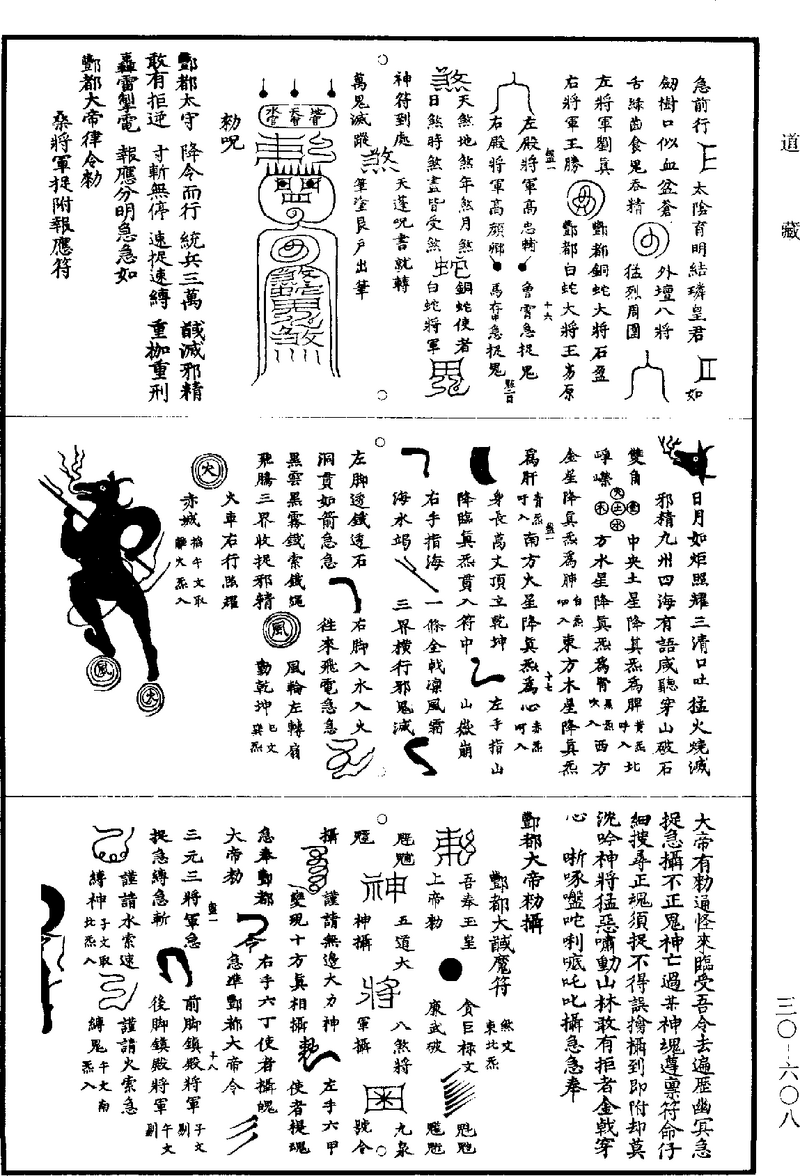 道藏
三〇—六〇八
急前行 太陰育明結璘皇君 如
劍樹口似血盆蒼 外壇八將
舌綠齒食鬼吞精 猛烈周圍
左將軍劉眞 酆都銅蛇大將石盈
右將軍王勝 酆都白蛇大將王
左殿將軍高忠輔 急捉鬼
右殿將軍高願卿 急捉鬼
煞天煞地煞年煞月煞 蛇銅蛇使者
日煞時煞盡皆受煞 白蛇將軍 鬼
神符到處 天蓬呪書就轉
萬鬼滅蹤 煞 筆塗艮戶出筆
水官 天官 地官
勑呪
酆都太守 降令而行 統兵三萬 馘滅邪精
敢有拒逆 寸斬無停 速捉速縛 重枷重刑
轟雷掣電 報應分明急急如
酆都大帝律令勑
桑將軍捉附報應符
日月如炬照耀三清口吐猛火燒滅
邪精九州四海有語咸聽穿山破石
雙角 中央土星降眞炁爲脾 黃炁呼入 北
崢嶸 火土水木 方水星降眞炁爲腎 黑炁吹入 西方
金星降眞炁爲肺 白炁呬入 東方木星降眞炁
爲肝 青炁吁入 南方火星降眞炁爲心 赤炁呵入
身長萬丈頂立乾坤 左手指山
降臨眞炁貫入符中 山嶽崩
右手指海 一條金戟凜風霜
海水竭 三界橫行邪鬼滅
左脚透鐵透石 右脚入水入火
洞貫如箭急急 往來飛電急急
黑雲黑霧鐵索鐵繩 風輪左轉扇
飛騰三界收捉邪精 風 動乾坤 巳文巽炁
火 火車右行炎耀
赤城 稻午文取離火炁入
風
火
大帝有勑通怪來臨受吾令去遍歷幽冥急
捉急攝不正鬼神亡過某神魂遵禀符命仔
細搜尋正魂須捉不得誤搶攝到即附却莫
沈吟神將猛惡嘯動山林敢有拒者金戟穿
心 唽啄囕咜唎㗭吒叱攝急急奉
酆都大帝勑攝
酆都大馘魔符
勑 吾奉玉皇 貪巨祿文 煞文東北炁
上帝勑 廉武破
神 五道大 八煞將
神攝 將 軍攝 九泉
攝 謹請無邊大力神 號令
變現十方眞相攝 左手六甲
急奉酆都 右手六丁使者攝魄 使者提魂
大帝勑 令 急準酆都大帝令
三元三將軍急 前脚鎮殿將軍 子文剔
捉急縛急斬 後脚鎮殿將軍 午文剔
謹請水索速 謹請火索急
縛神 子文取北炁入 縛鬼 午文南炁入